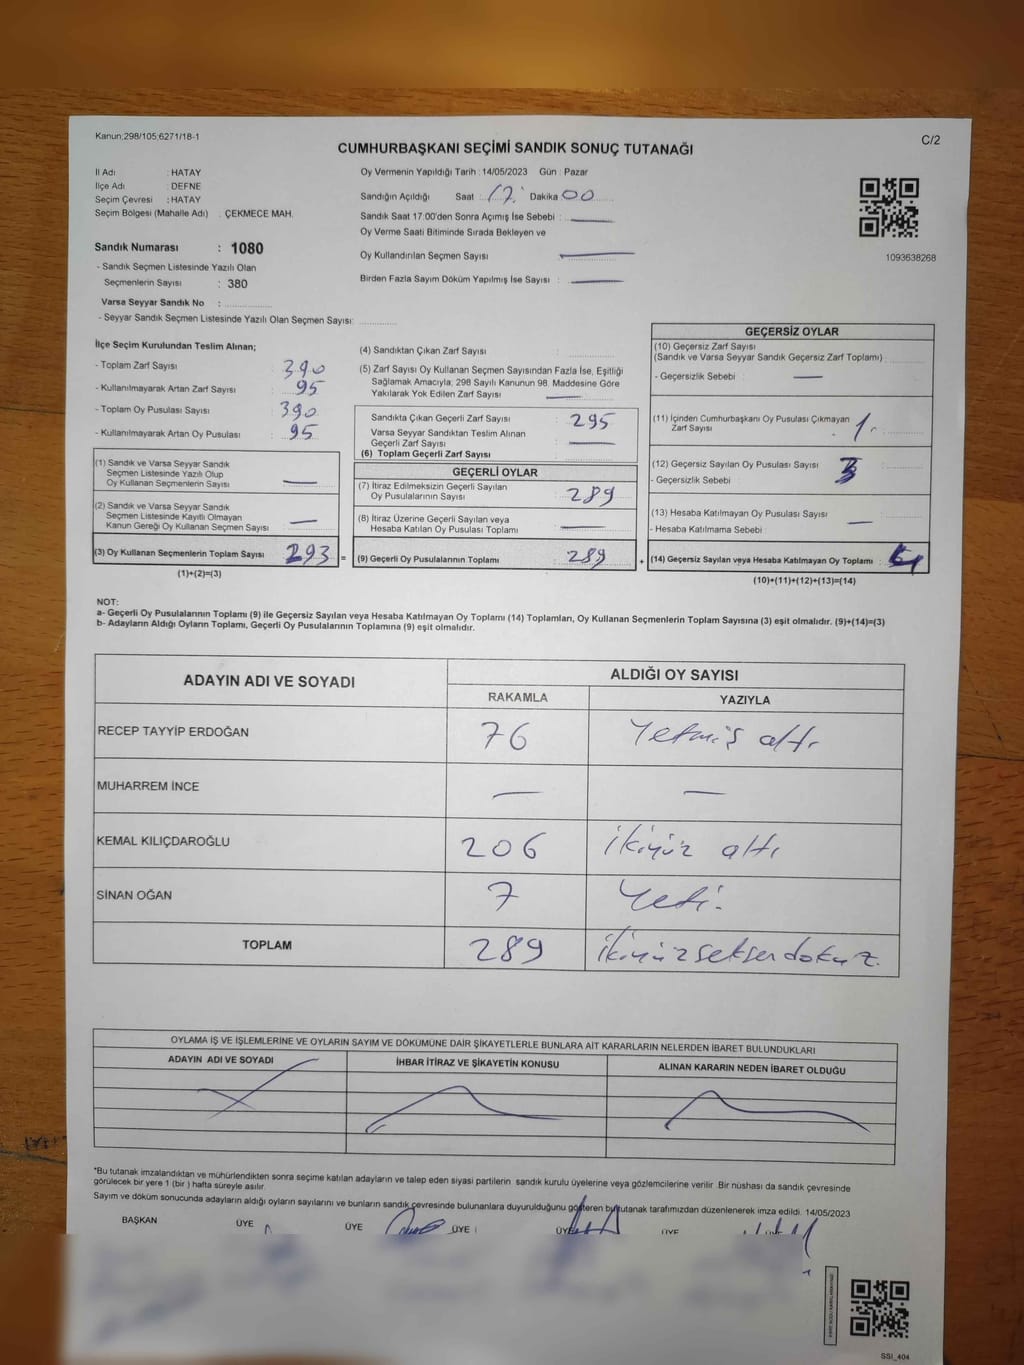 Kanun;298/105;6271/18-1
C/2
CUMHURBAŞKANI SEÇİMİ SANDIK SONUÇ TUTANAĞI
İl Adı : HATAY
İlçe Adı : DEFNE
Seçim Çevresi : HATAY
Seçim Bölgesi (Mahalle Adı) : ÇEKMECE MAH.
Sandık Numarası : 1080
- Sandık Seçmen Listesinde Yazılı Olan
Seçmenlerin Sayısı : 380
Varsa Seyyar Sandık No :
- Seyyar Sandık Seçmen Listesinde Yazılı Olan Seçmen Sayısı:
Oy Vermenin Yapıldığı Tarih : 14/05/2023 Gün : Pazar
Sandığın Açıldığı Saat : 17. Dakika 00
Sandık Saat 17:00'den Sonra Açımış İse Sebebi : —
Oy Verme Saati Bitiminde Sırada Bekleyen ve
Oy Kullandırılan Seçmen Sayısı —
Birden Fazla Sayım Döküm Yapılmış İse Sayısı : —
1093638268
İlçe Seçim Kurulundan Teslim Alınan;
- Toplam Zarf Sayısı : 390
- Kullanılmayarak Artan Zarf Sayısı : 95
- Toplam Oy Pusulası Sayısı : 390
- Kullanılmayarak Artan Oy Pusulası : 95
(1) Sandık ve Varsa Seyyar Sandık
Seçmen Listesinde Yazılı Olup
Oy Kullanan Seçmenlerin Sayısı : —
(2) Sandık ve Varsa Seyyar Sandık
Seçmen Listesinde Kayıtlı Olmayan
Kanun Gereği Oy Kullanan Seçmen Sayısı : —
(3) Oy Kullanan Seçmenlerin Toplam Sayısı : 293 =
(1)+(2)=(3)
(4) Sandıktan Çıkan Zarf Sayısı :
(5) Zarf Sayısı Oy Kullanan Seçmen Sayısından Fazla İse, Eşitliği
Sağlamak Amacıyla; 298 Sayılı Kanunun 98. Maddesine Göre
Yakılarak Yok Edilen Zarf Sayısı : —
Sandıkta Çıkan Geçerli Zarf Sayısı : 295
Varsa Seyyar Sandıktan Teslim Alınan
Geçerli Zarf Sayısı : —
(6) Toplam Geçerli Zarf Sayısı :
GEÇERLİ OYLAR
(7) İtiraz Edilmeksizin Geçerli Sayılan
Oy Pusulalarının Sayısı : 289
(8) İtiraz Üzerine Geçerli Sayılan veya
Hesaba Katılan Oy Pusulası Toplamı : —
(9) Geçerli Oy Pusulalarının Toplamı : 289 +
GEÇERSİZ OYLAR
(10) Geçersiz Zarf Sayısı
(Sandık ve Varsa Seyyar Sandık Geçersiz Zarf Toplamı) :
- Geçersizlik Sebebi : —
(11) İçinden Cumhurbaşkanı Oy Pusulası Çıkmayan
Zarf Sayısı : 1
(12) Geçersiz Sayılan Oy Pusulası Sayısı : 3
- Geçersizlik Sebebi :
(13) Hesaba Katılmayan Oy Pusulası Sayısı : —
- Hesaba Katılmama Sebebi :
(14) Geçersiz Sayılan veya Hesaba Katılmayan Oy Toplamı :
(10)+(11)+(12)+(13)=(14)
NOT:
a- Geçerli Oy Pusulalarının Toplamı (9) ile Geçersiz Sayılan veya Hesaba Katılmayan Oy Toplamı (14) Toplamları, Oy Kullanan Seçmenlerin Toplam Sayısına (3) eşit olmalıdır. (9)+(14)=(3)
b- Adayların Aldığı Oyların Toplamı, Geçerli Oy Pusulalarının Toplamına (9) eşit olmalıdır.
ADAYIN ADI VE SOYADI ALDIĞI OY SAYISI
RAKAMLA YAZIYLA
RECEP TAYYİP ERDOĞAN 76 Yetmiş altı
MUHARREM İNCE — —
KEMAL KILIÇDAROĞLU 206 ikiyüz altı
SİNAN OĞAN 7 Yedi.
TOPLAM 289 ikiyüzseksendokuz.
OYLAMA İŞ VE İŞLEMLERİNE VE OYLARIN SAYIM VE DÖKÜMÜNE DAİR ŞİKAYETLERLE BUNLARA AİT KARARLARIN NELERDEN İBARET BULUNDUKLARI
ADAYIN ADI VE SOYADI İHBAR İTİRAZ VE ŞİKAYETİN KONUSU ALINAN KARARIN NEDEN İBARET OLDUĞU
*Bu tutanak imzalandıktan ve mühürlendikten sonra seçime katılan adayların ve talep eden siyasi partilerin sandık kurulu üyelerine veya gözlemcilerine verilir. Bir nüshası da sandık çevresinde
görülecek bir yere 1 (bir ) hafta süreyle asılır.
Sayım ve döküm sonucunda adayların aldığı oyların sayılarını ve bunların sandık çevresinde bulunanlara duyurulduğunu gösteren bu tutanak tarafımızdan düzenlenerek imza edildi. 14/05/2023
BAŞKAN ÜYE ÜYE ÜYE ÜYE ÜYE
SSI_404